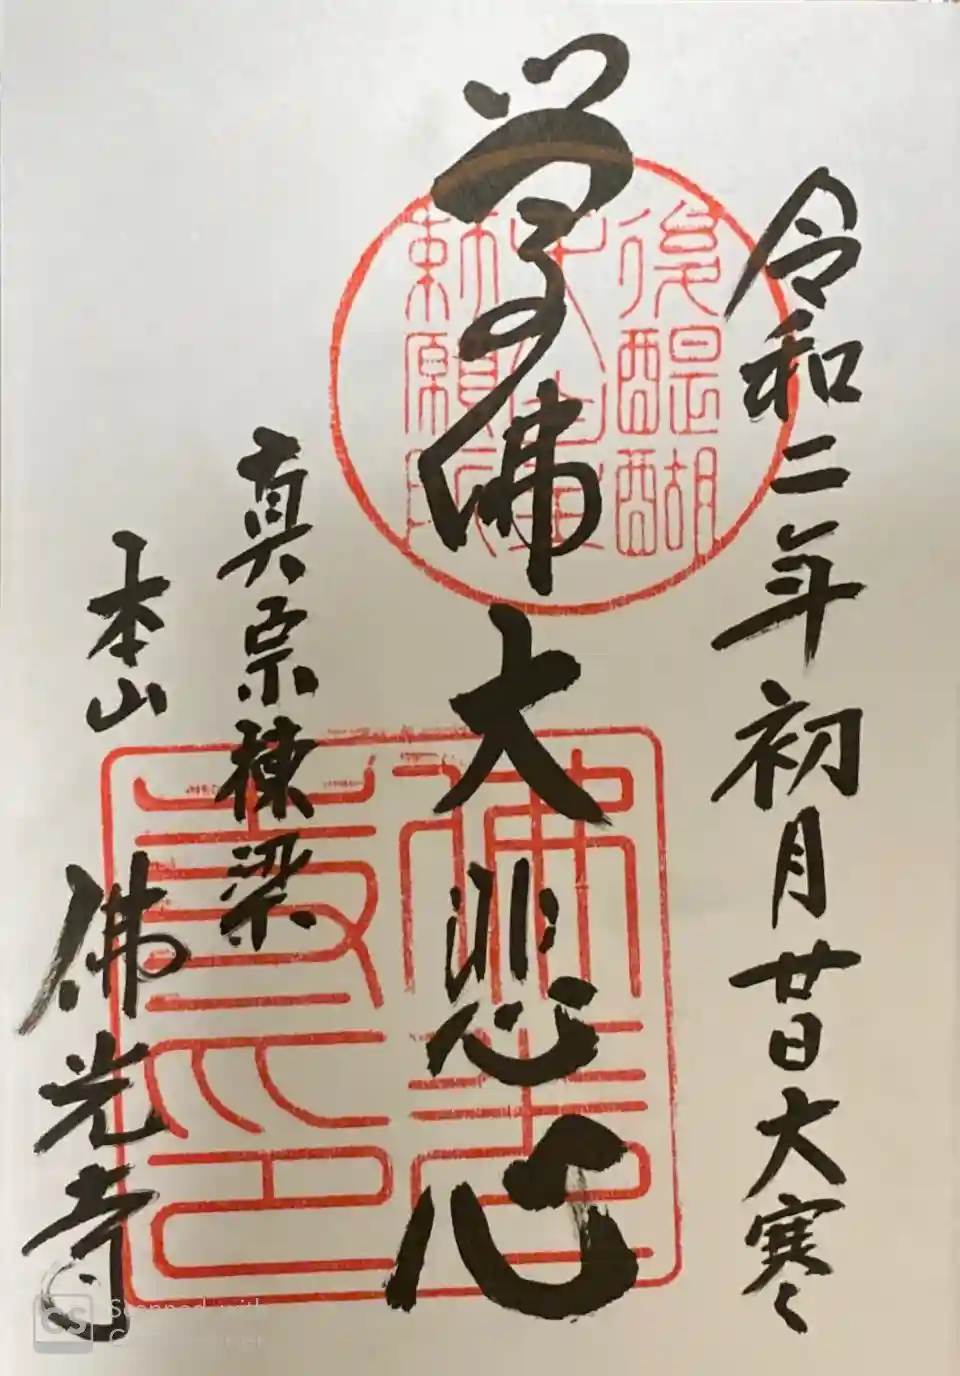 令和二年初月廿日大寒
学佛大悲心
真宗棟梁
本山 佛光寺
後醍醐
勅願所
CS
Scanned with